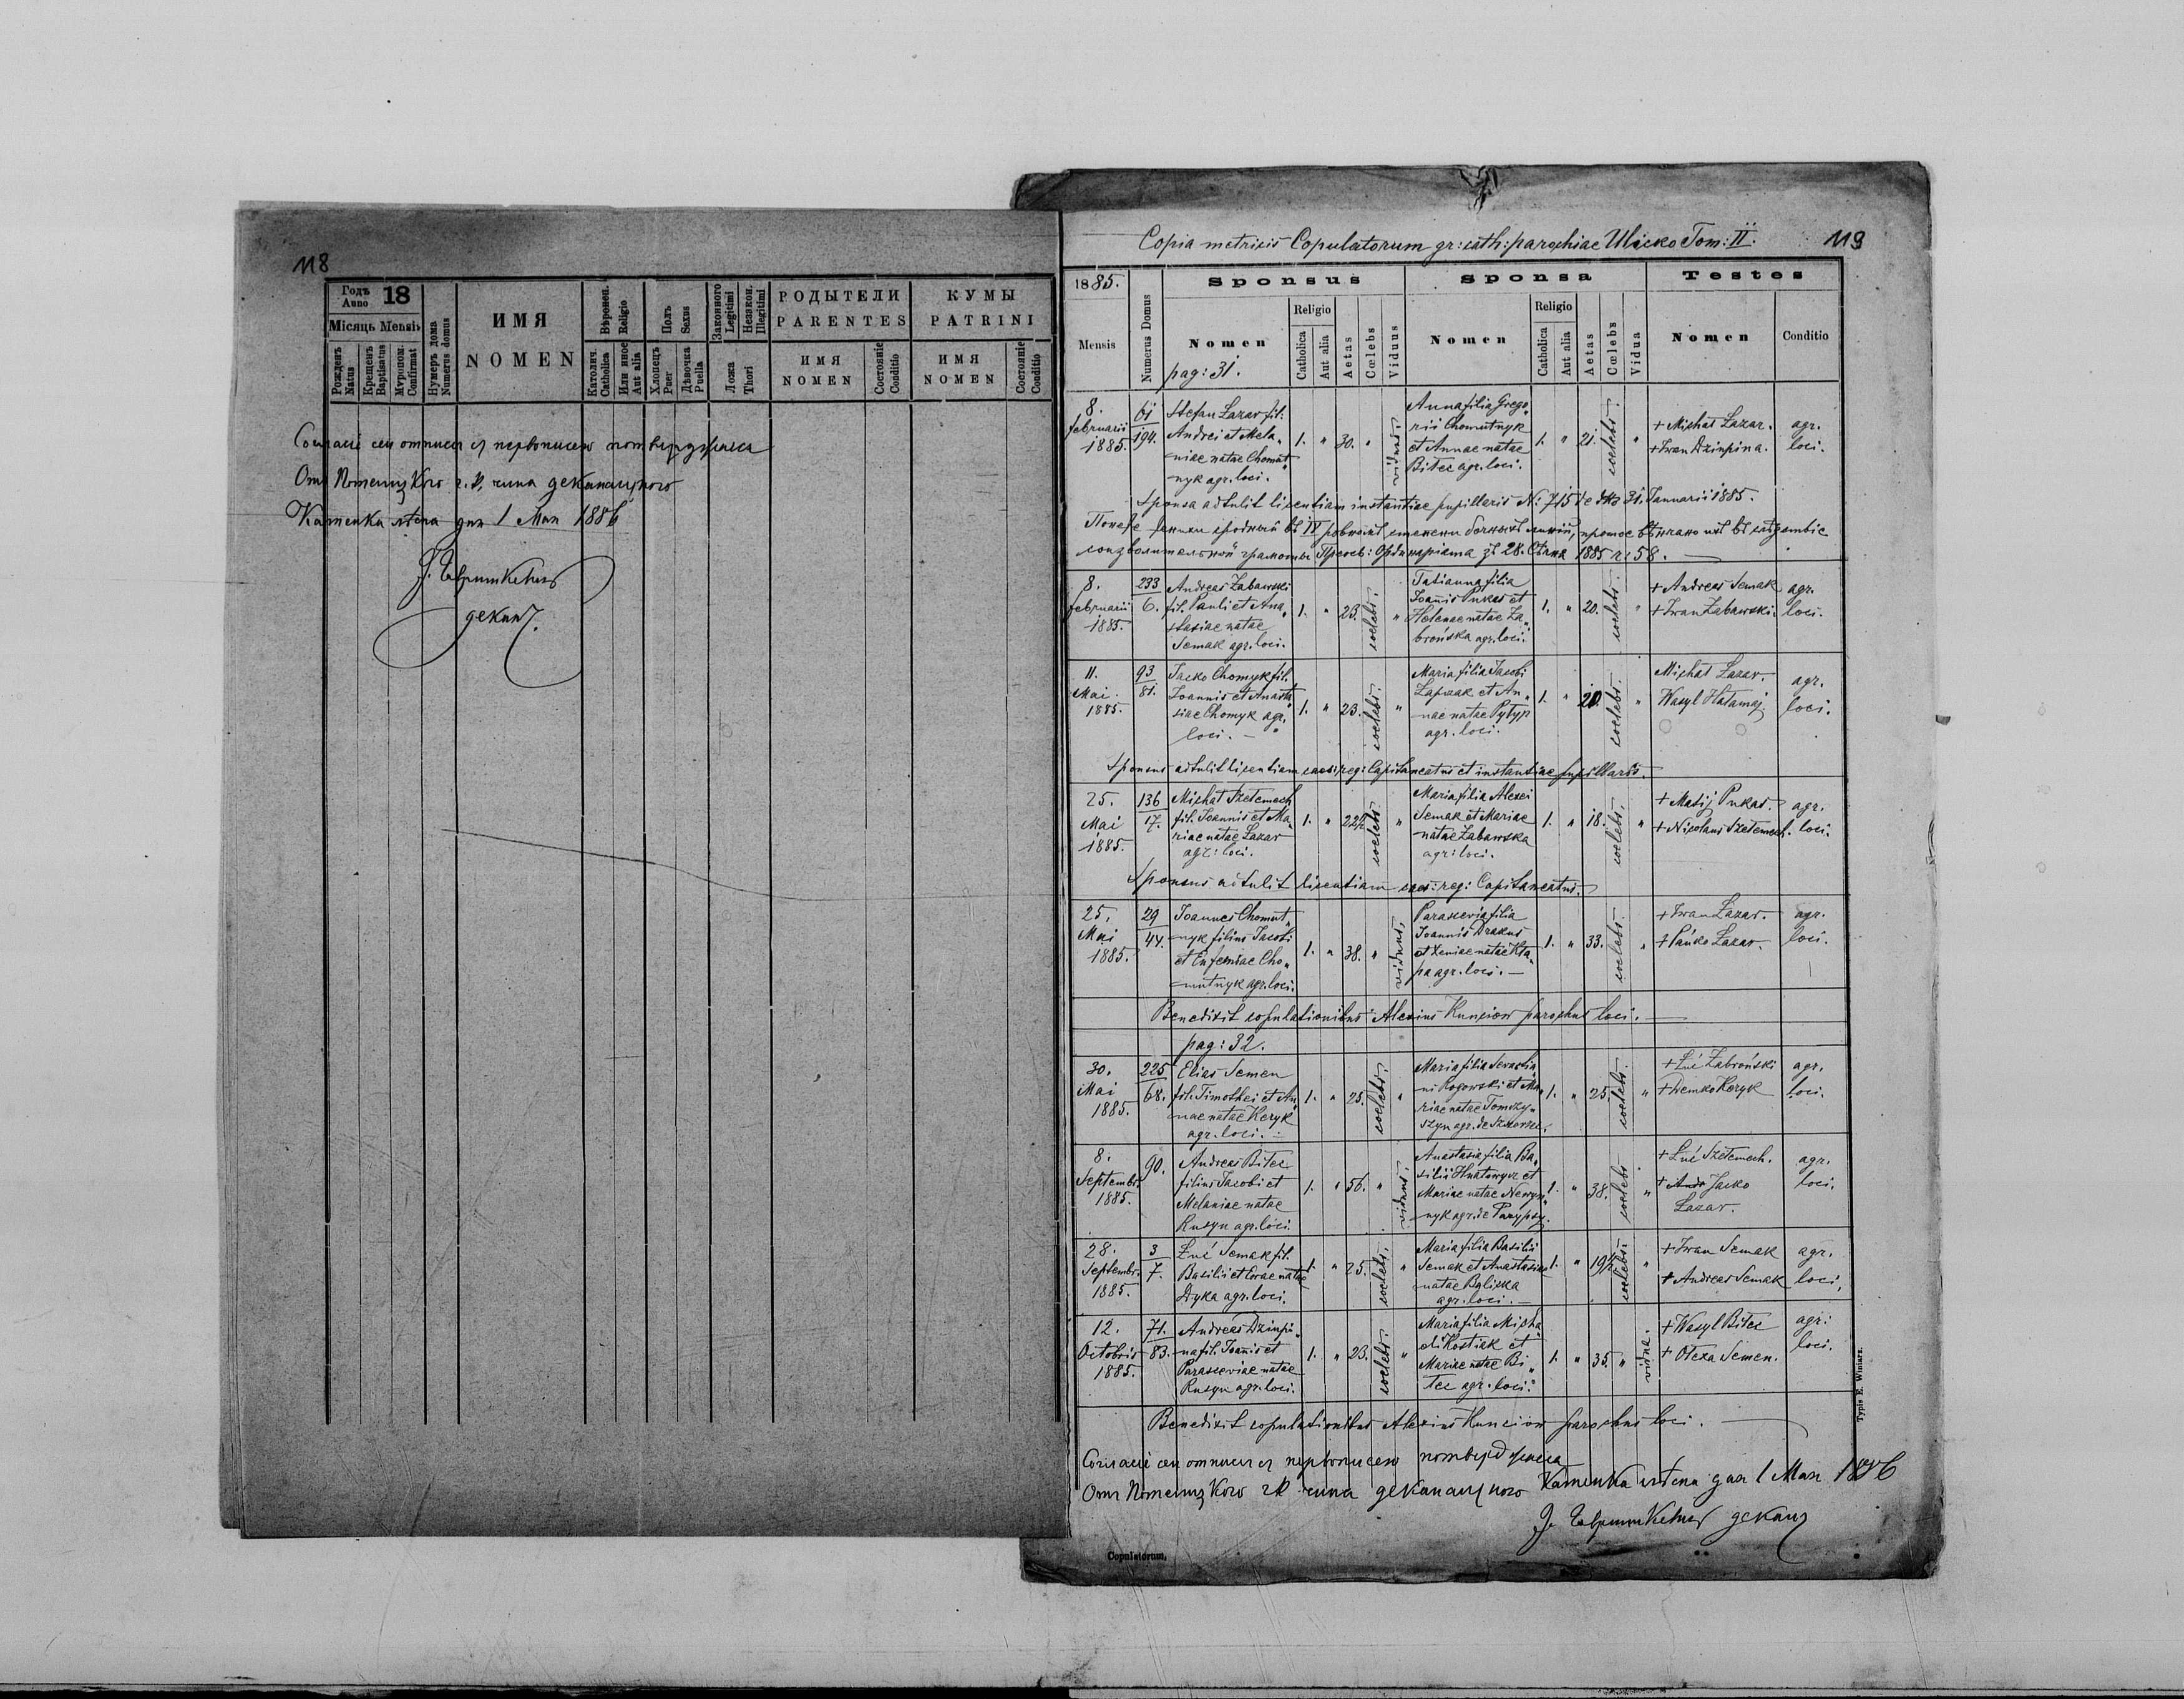 118
Годъ
Anno
18
Місяць Mensis
Рожденъ
Natus
Крещенъ
Baptisatus
Мѵропом.
Confirmat
Нумеръ дома
Numerus domus
ИМЯ
NOMEN
Вѣроиспов.
Religio
Католич.
Catholica
Или иное
Aut alia
Полъ
Sexus
Хлопецъ
Puer
Дѣвочка
Puella
Законного
Legitimi
Незакон.
Illegitimi
Ложа
Thori
РОДЫТЕЛИ
PARENTES
ИМЯ
NOMEN
Состояніе
Conditio
КУМЫ
PATRINI
ИМЯ
NOMEN
Состояніе
Conditio
Согласіе сеи отписи съ первописею потверждаеся
Отъ Потелицкого г. к. чина деканального
Каменка лѣсна дня 1 Мая 1886
деканъ
Copia metricis Copulatorum gr: cath: parochiae Ulicko Tom: II.
119
1885.
Mensis
Numerus Domus
Sponsus
Nomen
pag: 31.
Religio
Catholica
Aut alia
Aetas
Cœlebs
Viduus
Sponsa
Nomen
Religio
Catholica
Aut alia
Aetas
Cœlebs
Vidua
Testes
Nomen
Conditio
8.
februarii
1885.
61
194.
Stefan Lazar fil:
Andrei et Mela„
niae natae Chomut„
nyk agr. loci.
1. „ 30. „ viduus.
Anna filia Grego„
rii Chomutnyk
et Annae natae
Bitec agr. loci.
1. „ 21. coelebs. „
+ Michał Lazar.
+ Iwan Dzinpina.
agr.
loci.
Sponsa adtulit licentiam instantiae pupillaris N. 715 de dto 31. Januarii 1885.
Понеже сродный въ IV степени
28. Сѣчня 1885 ч: 58.
8.
februarii
1885.
233
6.
Andreas Zabawski
fil. Pauli et Ana„
stasiae natae
Semak agr. loci.
1. „ 23. coelebs. „
Tatianna filia
Joannis Pukas et
Helenae natae Za„
brońska agr. loci.
1. „ 20. coelebs. „
+ Andreas Semak
+ Iwan Zabawski.
agr.
loci.
11.
Mai
1885.
93
81.
Jacko Chomyk fil.
Joannis et Anasta„
siae Chomyk agr.
loci.
1. „ 23. coelebs. „
Maria filia Jacobi
Łapczak et An„
nae natae Pytyp
agr. loci.
1. „ 20. coelebs. „
Michał Lazar.
Wasyl Hałamaj
agr.
loci.
Sponsus adtulit licentiam caes: reg: Capitaneatus et instantiae pupillaris.
25.
Mai
1885.
136
17.
Michał Szetemech
fil. Joannis et Ma„
riae natae Lazar
agr: loci.
1. „ 22½ coelebs. „
Maria filia Alexei
Semak et Mariae
natae Zabawska
agr: loci.
1. „ 18. coelebs. „
+ Matij Pukas.
+ Nicolaus Szetemech.
agr.
loci.
Sponsus adtulit licentiam caes: reg: Capitaneatus.
25.
Mai
1885.
29
44.
Joannes Chomut„
nyk filius Jacobi
et Eufemiae Cho„
mutnyk agr. loci.
1. „ 38. „ viduus.
Parascevia filia
Joannis Drakus
et Xeniae natae Kła„
pa agr. loci.
1. „ 33. coelebs. „
+ Iwan Lazar.
+ Pańko Lazar.
agr.
loci.
Benedixit copulationibus Alexius Kunciow parochus loci.
pag: 32.
30.
Mai
1885.
225
68.
Elias Semen
fil. Timothei et An„
nae natae Keryk
agr. loci.
1. „ 25. coelebs. „
Maria filia Sevastia„
ni Rogowski et Ma„
riae natae Tomczy„
szyn agr. de
1. „ 25. coelebs. „
+ Łuć Zabroński
+ Demko Keryk
agr.
loci.
8.
Septembr.
1885.
90.
Andreas Bitec
filius Jacobi et
Melaniae natae
Rusyn agr. loci.
1. „ 56. „ viduus.
Anastasia filia Ba„
silii Hnatowycz et
Mariae natae
nyk agr. de Parypsy.
1. „ 38. coelebs „
+ Łuć Szetemech.
+ Jacko
Lazar.
agr.
loci.
28.
Septembr.
1885.
3
7.
Łuć Semak fil.
Basilii et Evae natae
Dyka agr. loci.
1. „ 25. coelebs. „
Maria filia Basilii
Semak et Anastasiae
natae Byliczka
agr. loci.
1. „ 19½ coelebs. „
+ Iwan Semak
+ Andreas Semak
agr.
loci.
12.
Octobris
1885.
71.
83.
Andreas Dzinpi„
na fil. Joannis et
Parasceviae natae
Rusyn agr. loci.
1. „ 23. coelebs. „
Maria filia Micha„
eli Kostiak et
Mariae natae Bi„
tec agr. loci.
1. „ 35. „ vidua.
+ Wasyl Bitec
+ Ołexa Semen.
agr:
loci.
Benedixit copulationibus Alexius Kunciow parochus loci.
Согласіе сеи отписи съ первописею потверждаеся
Отъ Потелицкого г. к. чина деканального Каменка лѣсна дня 1 Мая 1886
деканъ
Copulatorum.
Typis E. Winiarz.